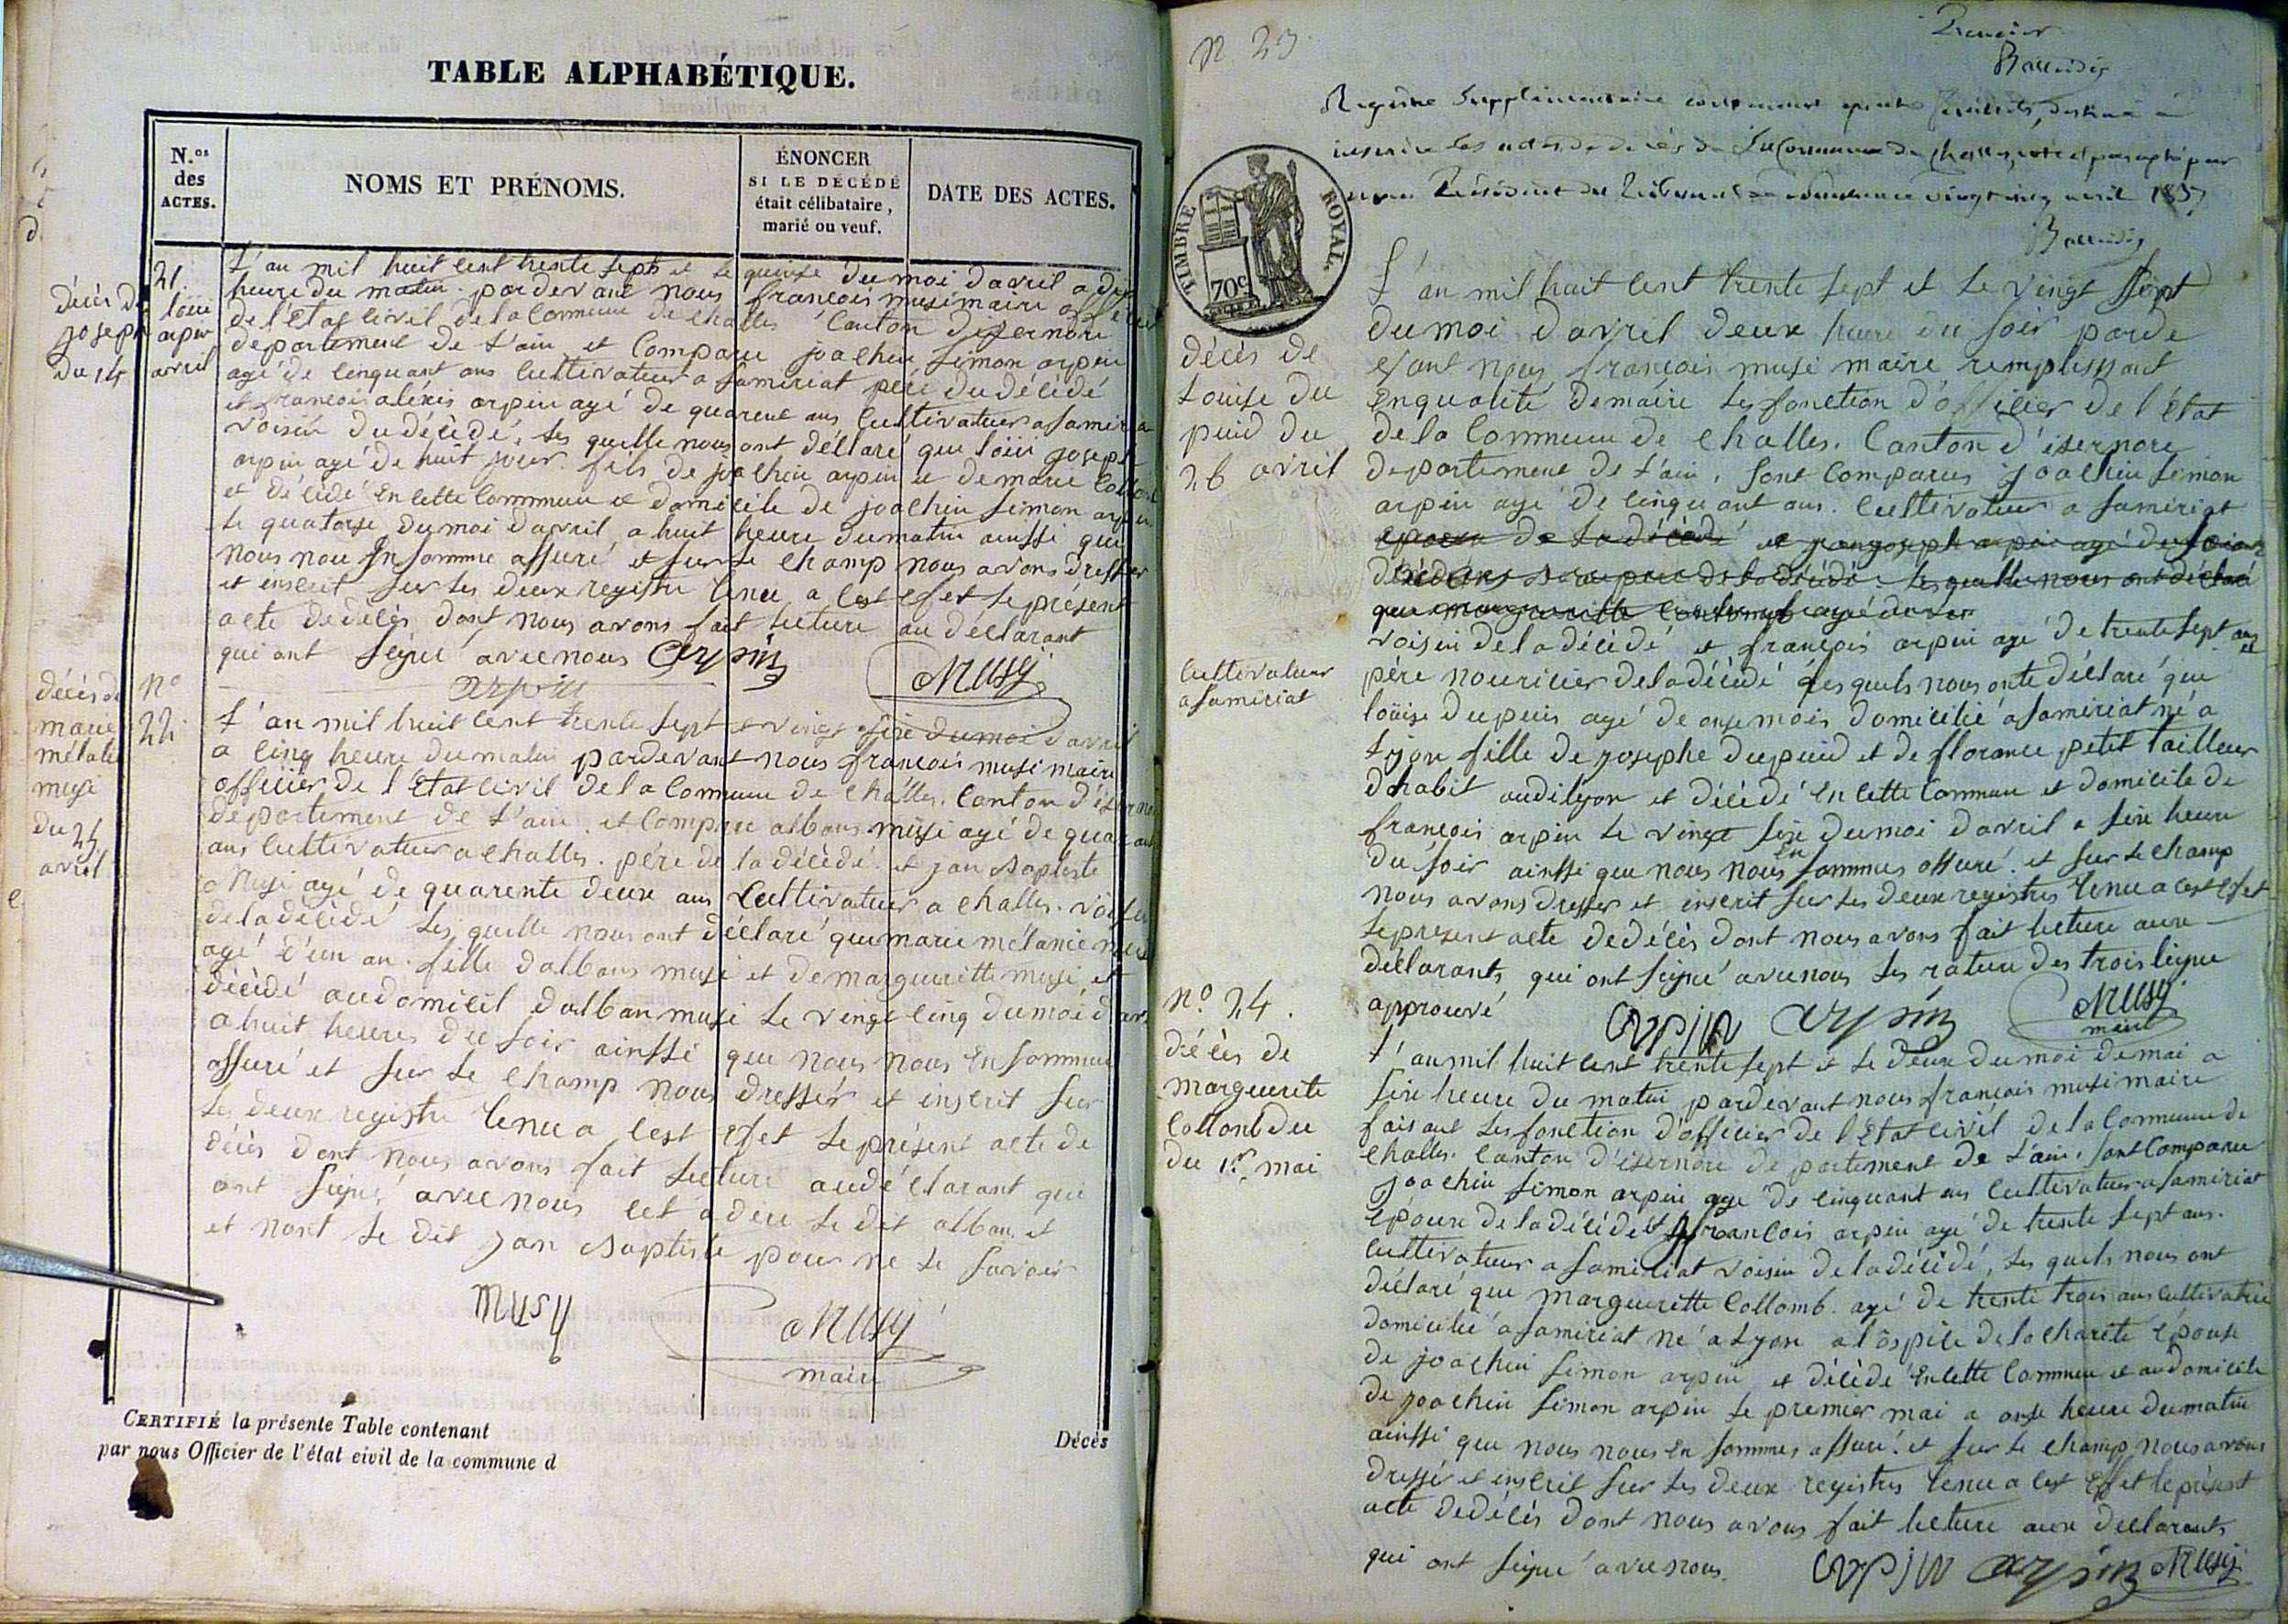 TABLE ALPHABÉTIQUE.
N.os des ACTES.
NOMS ET PRÉNOMS.
ÉNONCER
SI LE DÉCÉDÉ
était célibataire,
marié ou veuf.
DATE DES ACTES.
21.
décès de loüi
joseph arpin
du 14 avril
L'an mil huit cent trente sept et le quinse du moi d'avril a dix
heure du matin pardevant nous françois musi maire officier
de l'état civil de la Commune de Challes Canton d'isernore
departement de l'ain et Comparu joachin simon arpin
agé de cinquant ans Cultivateur a samiriat père du décédé
et françois aléxis arpin agé de quarent ans Cultivateur a samiria
voisin du décédé, les quelle nous ont déclaré que loüi joseph
arpin agé de huit jour fils de joachin arpin et de marie Collomb
et décédé En cette Commune et domicile de joachin simon arpin
le quatorse du moi d'avril a huit heure du matin ainssi que
nous nou En somme assuré et sur le champ nous avons dresser
et inscrit sur les deux registre tenu a cest efet le présent
acte de décès dont nous avons fait lecture au déclarant
qui ont signé avec nous arpin
arpin Musy
décès de
marie
mélanie
musi
du 25
avril
N° 22.
L'an mil huit cent trente sept et vingt sixe du moi d'avril
a cinq heure du matin pardevant nous françois musi maire
officier de l'Etat civil de la Commune de Challes. Canton d'iserno
departement de l'ain et Comparu albans musi agé de quarant
ans Cultivateur a Challes. père de la décédé. et jan Baptiste
Musi agé de quarente deux ans Cultivateur a challes. voisin
de la décédé les quelle nous ont déclaré que marie mélanie musi
agé d'un an. fille d'albans musi et de marguerittte musi, et
décédé audomicil d'alban musi le vingt cinq du moi d'avr
a huit heures du soir ainssi que nous nous En sommes
assuré et sur le champ nous dressér et inscrit sur
les deux registre tenu a cest efet le présent acte de
décès dont nous avons fait lecture audéclarant qui
ont signé avec nous cet a dire le dit alban, et
et nont le dit jan Baptiste pour ne le savoir
Musy Musy
maire
CERTIFIÉ la présente Table contenant
par nous Officier de l'état civil de la commune d
Décès
N 23
Premier
Registre Supplémentaire contenant quatre feuillets, destiné à
inscrire les actes de décès de la Commune de Challes, coté et paraphé par
nous Président du Tribunal de vingt cinq avril 1837
TIMBRE ROYAL.
70c
décès de
Louise du
puid du
26 avril
L'an mil huit cent trente sept et le vingt sept
du moi d'avril deux heure du soir parde
vant nous françois musi maire remplissant
Enqualité de maire les fonction d'officier de l'état
de la Commune de Challes. Canton d'isernore
departement de l'ain, sont Comparus joachin simon
arpin agé de cinquant ans. Cultivateur a samiriat
epoux de la décédé et
de la décédé les quelle nous ont déclaré
que margueritte Collomb agé de
voisin de la décédé et françois arpin agé de trente sept ans et
Cultivateur
a samiriat
père nouricier de la décédé les quels nous onte déclaré que
loüise dupuis agé de onse mois domicilié a samiriat né a
Lyon fille de josephe dupuid et de florance petit tailleur
d'habit audi lyon et décédé En cette Commune et domicile de
françois arpin le vingt sixe du moi d'avril a sixe heure
du soir ainssi que nous nous En sommes assuré. et sur le champ
nous avons dresser et inscrit sur les deux registres tenu a cest efet
le present acte de décès dont nous avons fait lecture aux
déclarants qui ont signé avec nous les rature des trois ligne
approuvé
arpin arpin Musy
maire
N° 24.
décès de
marguerite
Collomb du
du 1er mai
L'an mil huit cent trente sept et le deux du moi de mai a
sixe heure du matin pardevant nous françois musi maire
faisant les fonction d'officier de l'Etat civil de la Commune de
Challes. Canton d'isernore departement de l'ain, sont Comparu
joachin simon arpin agé de cinquant ans Cultivateur a samiriat
époux de la décédé et françois arpin agé de trente sept ans.
Cultivateur a samiriat voisin de la décédé, les quels nous ont
déclaré que margueritte Collomb. agé de trente trois ans cultivatrice
domicilié a samiriat né a Lyon a l'ospice de la charité épouse
de joachin simon arpin et décédé En cette Commune et audomicile
de joachin simon arpin le premier mai a onse heure du matin
ainssi que nous nous En sommes assuré. et sur le champ nous avons
dressé et inscrit sur les deux registres tenu a cest Effet le présent
acte de décès dont nous avons fait lecture aux declarants
qui ont signé avec nous. arpin arpin Musy